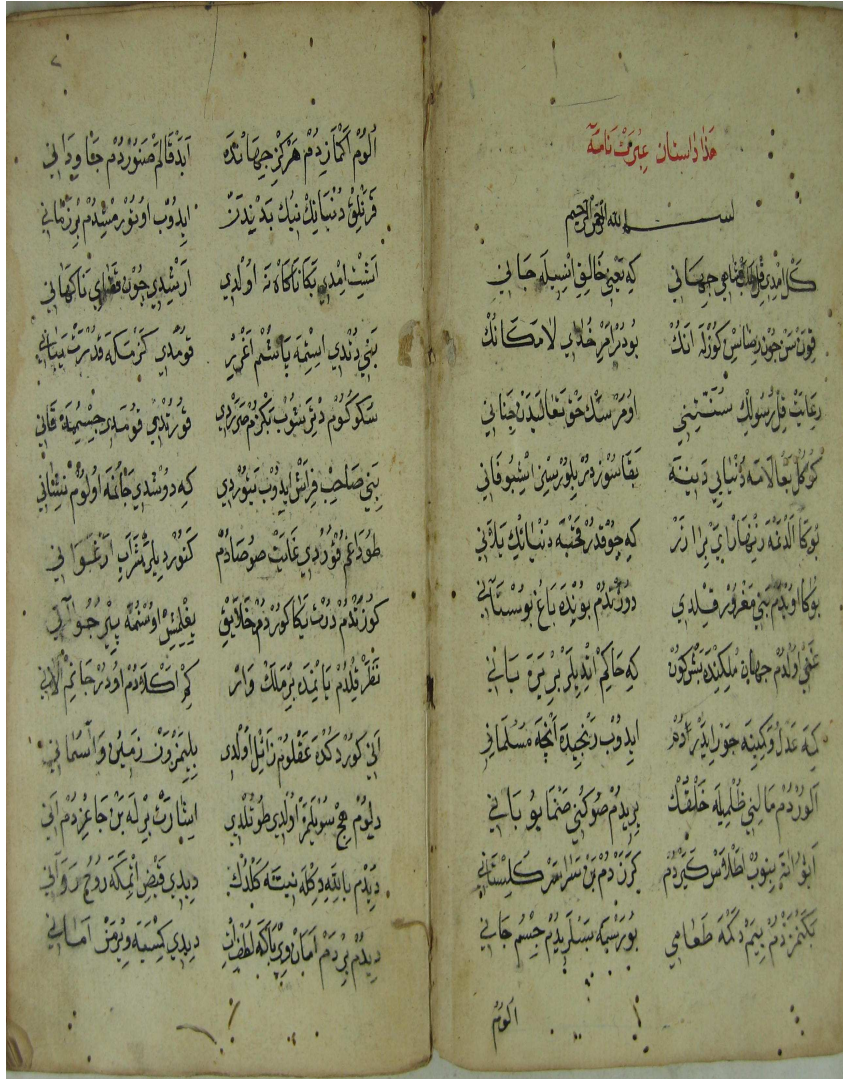 هذا داستان عبرت نامه
بسم الله الرحمن الرحيم
كل امدي جهاني كه يعني خالق انسيله جاني
قون سن چون كوزله انك بودر امر خداي لامكانك
رعايت قل رسولك سنتني اومرسك حق تعاليدن جناني
كوكل بغلامه دنيايي دينه بقا سوزدر بلورسن اشبو فاني
بوكا الدنمه زنهار اي برادر كه چوقدر قحبه دنيانك يلاني
بوكا اويدم بني مغرور قلدي دوزتدم بونده باغ بوستاني
غني اولدم جهان ملكنده بش كون كه حاكم اندیلر بر يره باني
كمه عدل و كمينه جور ايدردم ايدوب رنجيده انجه مسلماني
الوردم مالني ظلميله خلقك يريدم صوكني صنمايو باني
آت و اته بنوب اطلاس كيردم كزردم بن سراسر كلستاني
بكنمزدم ييمدكمه طعامي بوريسه بسلريدم جسم جاني
الوم
الوم اكمازدم هركز جهانده ابد قالم صنوردم جاوداني
قرنلق دنيانك نيك بدندن ايدوب اونورمشيدم بر زماني
اشيت امدي بكا ناكاه نه اولدي ارشدي چون قضاي ناكهاني
بني دندي اسيتمه ياشم اغرير قومدي كزمكه قدرت مياني
سكوكوم دتر شوب بكزم صردي قورتدي قومدي جسيمده قاني
بني صاحب فراش ايدوب يتوردي كه دوشدي جانمه اولوم نشاني
طوداغم قوردي غايت صوصادم كنورديلر شراب ارغواني
كوزتدم درت يكا كوردم خلايق يغلمش اوستمه پير جواني
نظر قلدم يانمده بر ملك وار كم اكلادم اودر جانم الاني
اني كوردكده عقلوم زائل اولدي بلمزون زمين و اسماني
ديلوم هيچ سويلمز اولدي طوتلدي اشارت برله بن جاغردم اني
ديدم بالله دكله نيته كلدك ديدي قبض اتمكه روح رواني
ديدم بردم امان وير باكه لطف ات ديدي كسيه ويرمز اماني